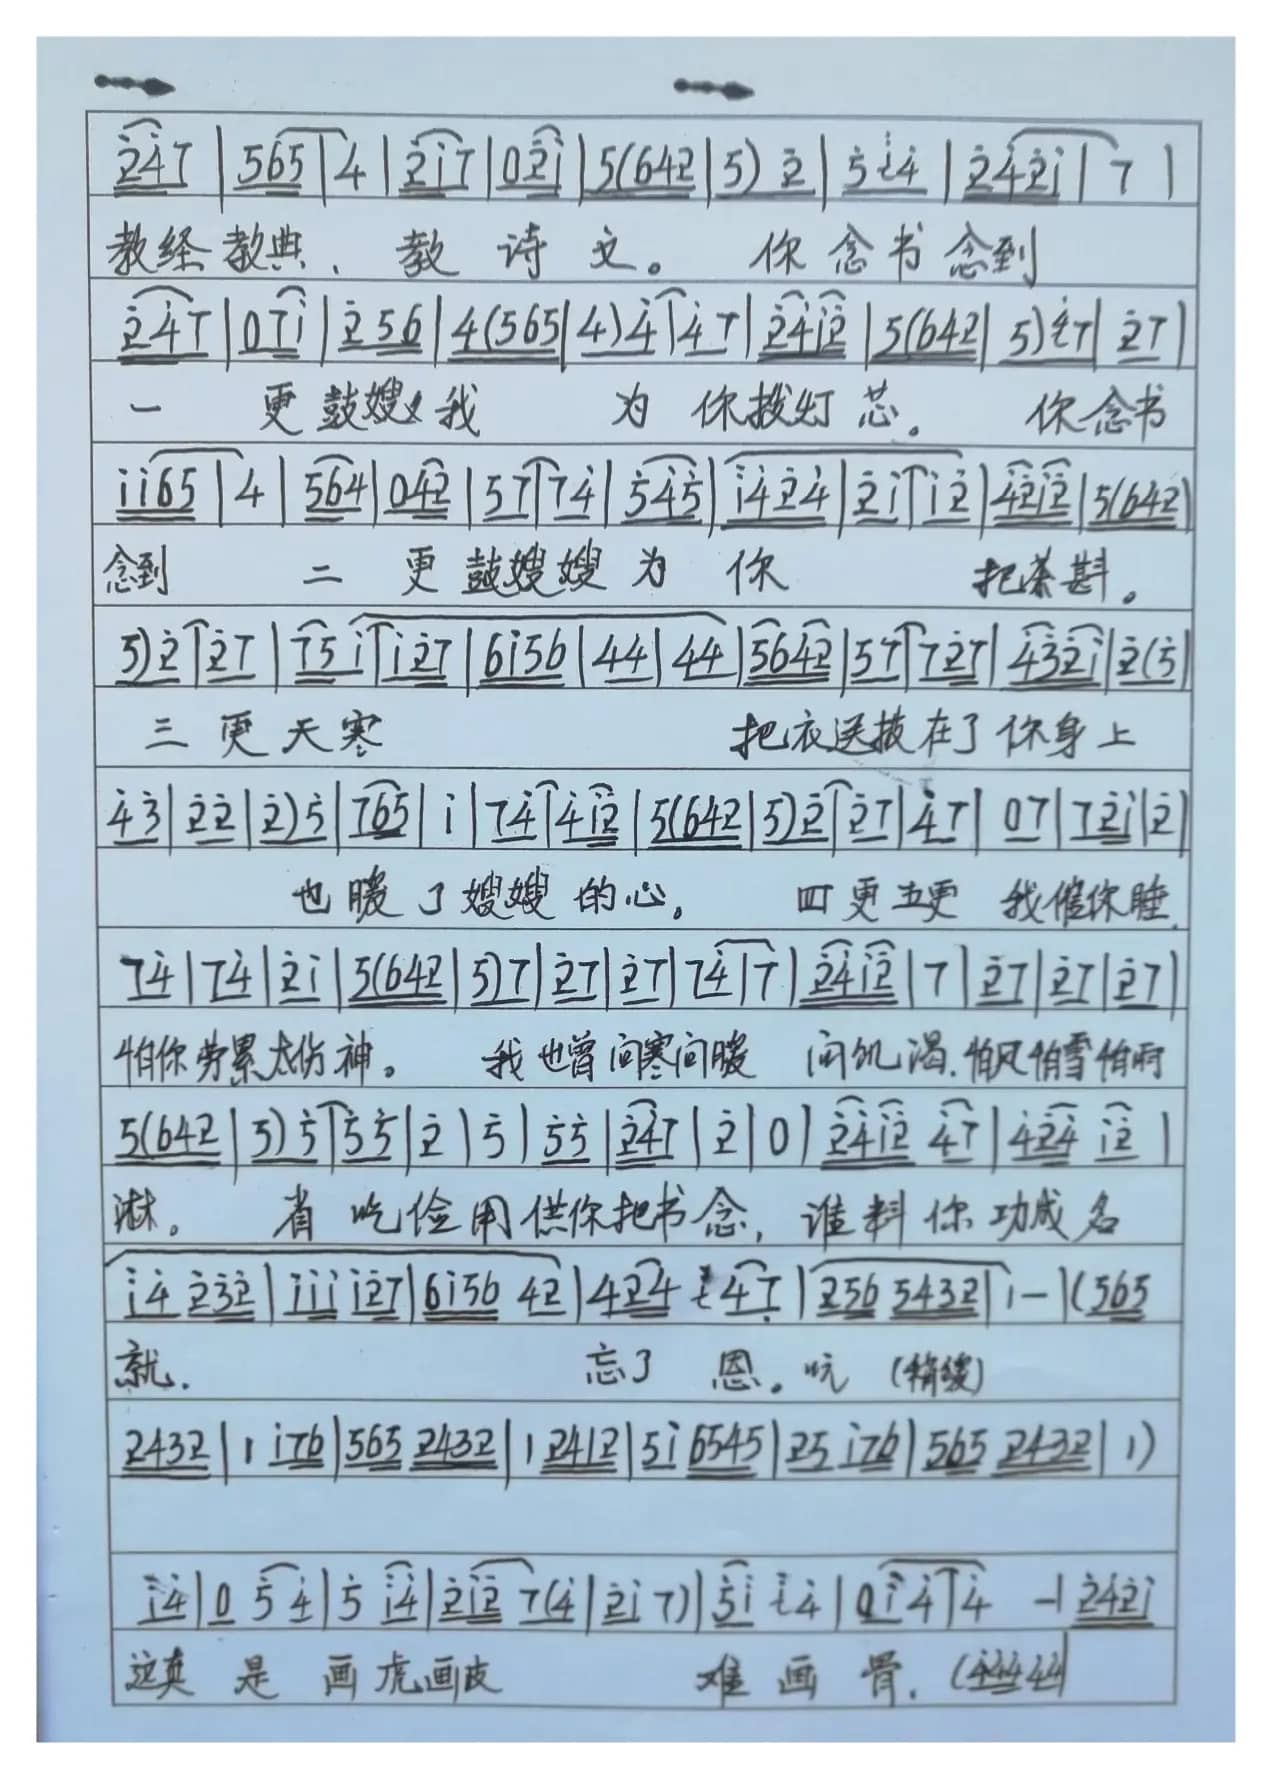 2̇4̇7 | 565 | 4 | 2̇i7 | 02̇i | 5(642 | 5) 2̇ | 5̇ i4̇ | 2̇4̇2̇i | 7 |
教经教典、教诗文。 你念书念到
2̇4̇7 | 07i | 2̇56 | 4(565 | 4)4̇ | 4̇7 | 2̇4̇i2̇ | 5(642 | 5)i7 | 2̇7 |
一 更鼓嫂嫂我 为你拨灯芯。 你念书
ii65 | 4 | 564 | 042 | 57 | 74̇ | 5̇4̇5̇ | i4̇2̇4̇ | 2̇i | i2̇ | 4̇2̇i2̇ | 5(642 |
念到 二更鼓嫂嫂为你 把茶斟。
5)2̇ | 2̇7 | 75i | i2̇7 | 6i56 | 44 | 44 | 5642 | 57 | 72̇7 | 4̇3̇2̇i | 2̇(5̇ |
三更天寒 把衣送披在了你身上
4̇3̇ | 2̇2̇ | 2̇)5̇ | 765 | i | 74̇ | 4̇i2̇ | 5(642 | 5)2̇ | 2̇7 | 4̇7 | 07 | 72̇i | 2̇ |
也暖了嫂嫂的心。 四更五更 我催你睡.
74̇ | 74̇ | 2̇i | 5(642 | 5)7 | 2̇7 | 2̇7 | 74̇ | 7 | 2̇4̇i2̇ | 7 | 2̇7 | 2̇7 | 2̇7 |
怕你劳累太伤神。 我也曾问寒问暖 问饥渴.怕风怕雪怕雨
5(642 | 5)5̇ | 5̇5̇ | 2̇ | 5̇ | 5̇5̇ | 2̇4̇7 | 2̇ | 0 | 2̇4̇i2̇ 4̇7 | 4̇2̇4̇ i2̇ |
淋。 省吃俭用供你把书念, 谁料你功成名
i4̇ 2̇3̇2̇ | iii i2̇7 | 6i56 42 | 424 4̇7 | 256 5432 | 1 – | (565
就. 忘了恩。吭 (稍缓)
2432 | 1 i76 | 565 2432 | 1 2412 | 5i 6545 | 25 i76 | 565 2432 | 1)
i4̇ | 0 5̇4̇ | 5̇ i4̇ | 2̇i2̇ 7(4̇ | 2̇i 7) | 5̇i i4̇ | 0i4̇ | 4̇ – | 2̇4̇2̇i
这真是画虎画皮 难画骨. (4̇4̇4̇ 4̇4̇